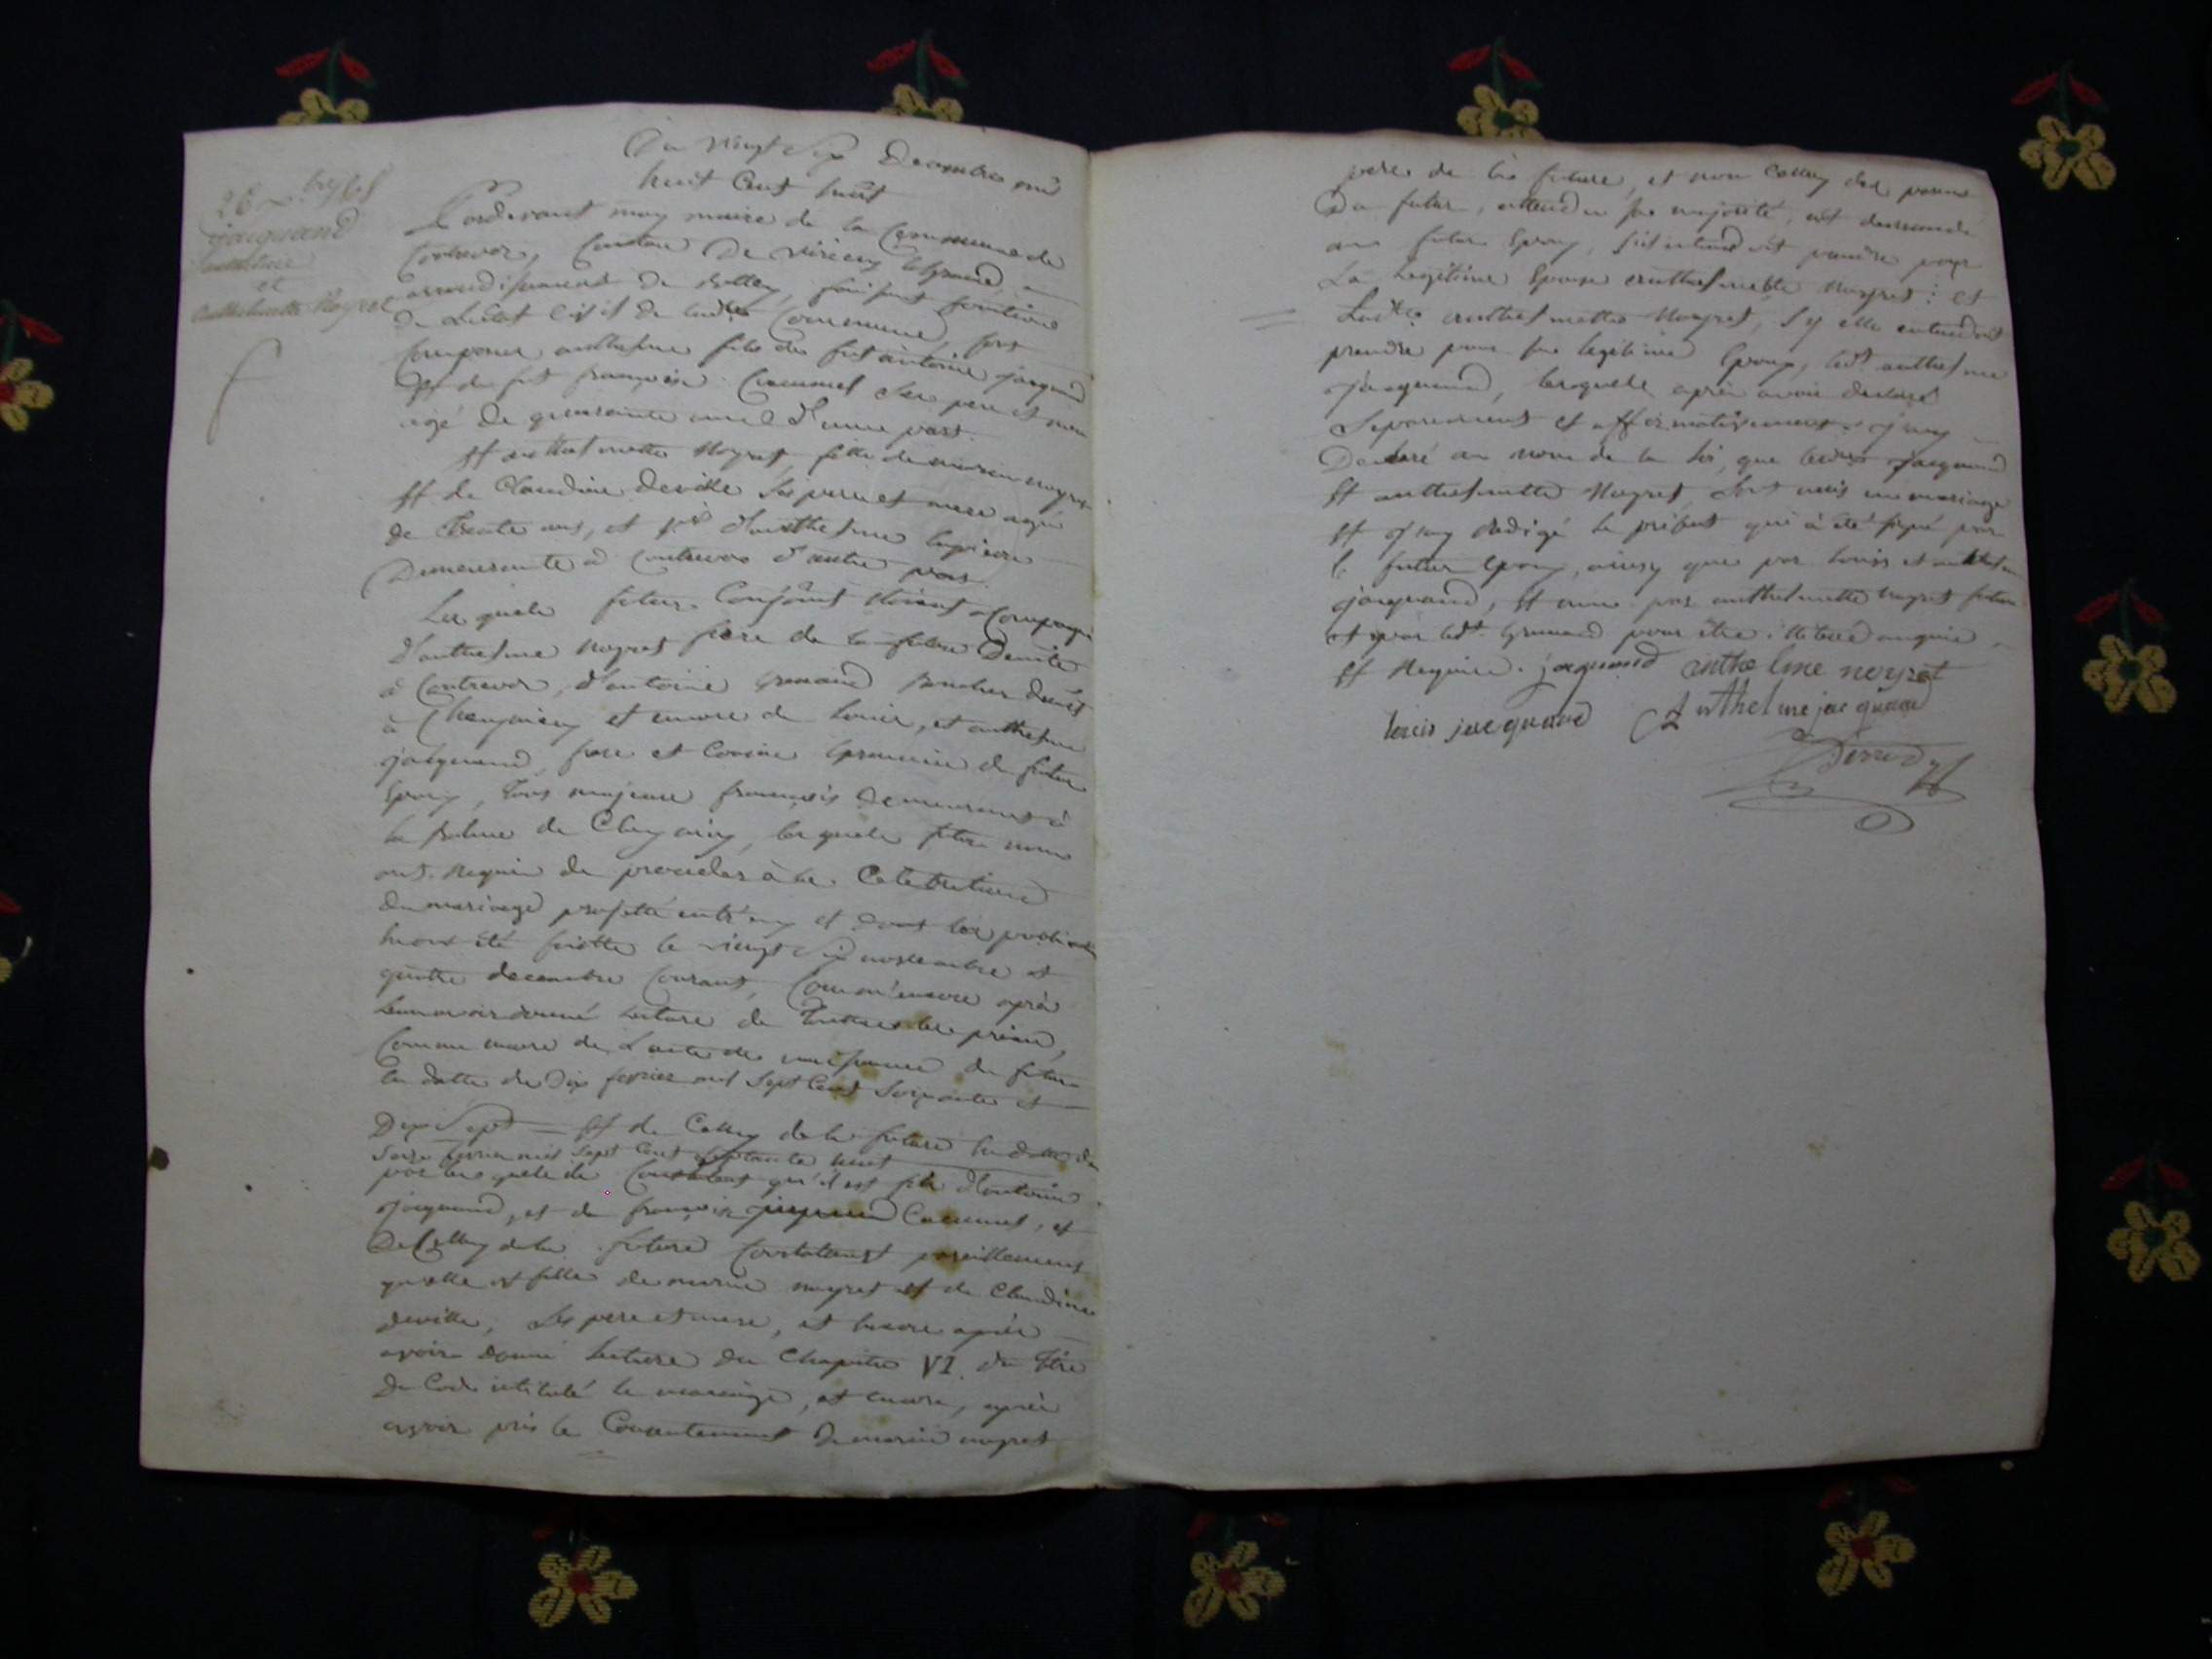 Du vingt Six Decembre mil
huit Cent huit
26 Xbre 1808
jacquand
anthelme
et
anthelmette Noyret
Pardevant moy maire de la Commune de
Contrevoz, Canton de virieu le grand
arrondissement de Belley, faisant fonctions
de L'état Civil de ladte Commune, sont
Comparus anthelme fils de fut antoine jacquand
Et de fut françoise Cacumel ses pere et mere
agé de quarante ans d'une part.
Et anthelmette Noyret fille de marin noyret
Et de Claudine deville ses pere et mere agée
de trente ans, et d'anthelme
Demeurante à Contrevoz d'autre part.
Lesquels futurs Conjoints étoient accompagnés
d'anthelme Noyret frere de la future Demte
à Contrevoz, d'antoine Demt
à Cheignieu et encore de Louis, et anthelme
jacquand, frere et Cousin germain du futur
Epoux, tous majeurs françois demeurants à
la balme de Cheignieu, lesquels futurs nous
ont Requis de proceder à la Celebration
du mariage projetté entr'eux et dont les publications
ont été faittes le vingt Six novembre et
quatre decembre Courant, Comm'encore après
leur avoir donné lecture de toutes les pièces,
Comme encore de L'acte de naissance du futur
en datte du Dix fevrier mil Sept Cent Soixante et
Dix Sept Et de Celluy de la future en datte du
mil Sept Cent Septante huit
par lesquels ils Constatent qu'il est fils d'antoine
jacquand, et de françoise Cacumel, et
De Celluy de la future Constatant pareillement
qu'elle est fille de marin noyret et de Claudine
deville, Ses pere et mere, et encore après
avoir donné lecture du Chapitre VI. du titre
du Code intitulé le mariage, et encore, après
avoir pris le Consentement de marin noyret
pere de la future, et non Celluy des parens
Du futur, attendu sa majorité, ait demandé
au futur Epoux, s'il entendoit prendre pour
La Legitime Epouse anthelmette Noyret: Et
Ladte anthelmette Noyret, Sy elle entendoit
prendre pour son legitime Epoux, ledt anthelme
jacquand, lesquels après avoir declaré
Separement et affirmativement j'ay
Declaré au nom de la loi, que lesdts jacquand
Et anthelmette Noyret, Sont unis en mariage
Et j'ay redigé le présent qui à été signé par
le futur Epoux, ainsy que par louis et anthelme
jacquand, Et non par anthelmette noyret future
et par ledt pour être illiterés enquis
Et Requis. jacquand anthelme noyret
louis jacquand Anthelme jacquand